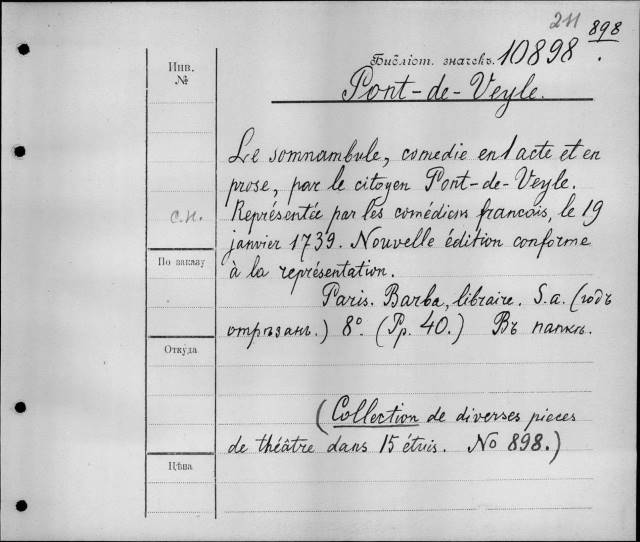 211 898
Библіот. значекъ. 10898.
Инв.
№
Pont-de-Veyle.
Le somnambule, comedie en 1 acte et en
prose, par le citoyen Pont-de-Veyle.
Représentée par les comédiens francais, le 19
с.н.
janvier 1739. Nouvelle édition conforme
По заказу
à la représentation.
Paris. Barba, libraire. S.a. (годъ
отрѣзанъ.) 8º. (Pp. 40.) Въ папкѣ.
Откуда
(Collection de diverses pieces
de théâtre dans 15 étuis. No 898.)
Цѣна